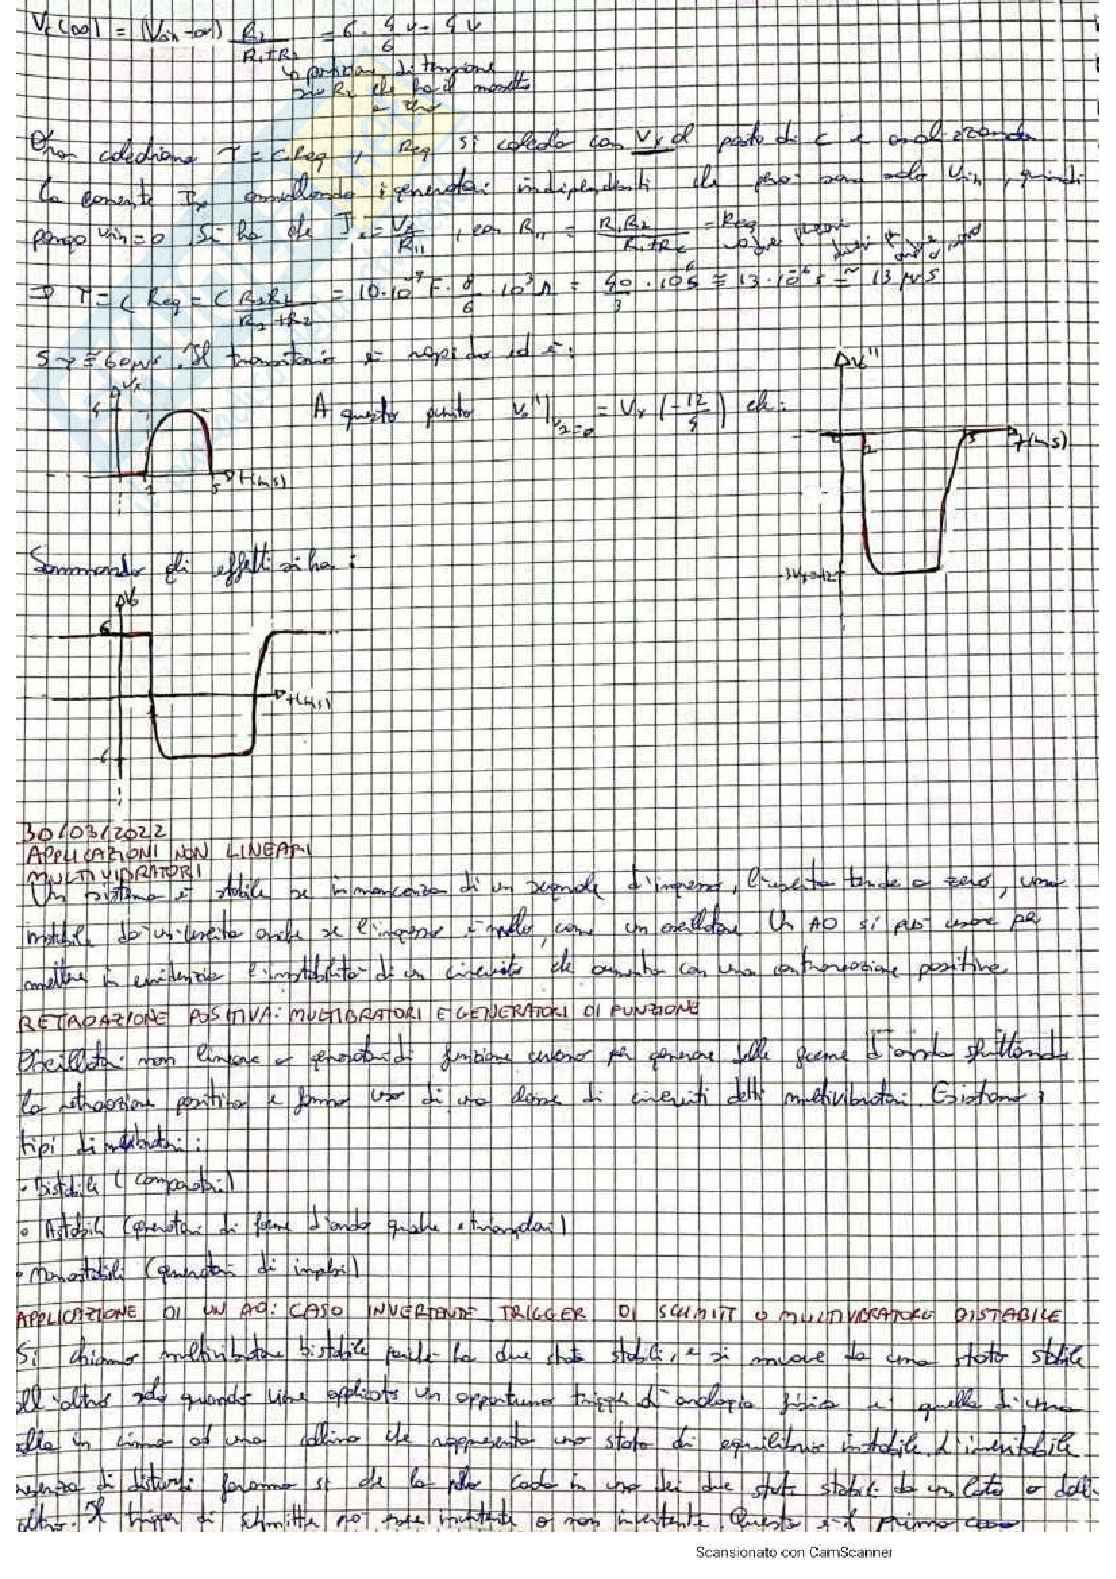 V_c(∞) = (V_in - 0V) R_2/(R_1+R_2) = 6 · 4/6 V = 4 V
↳ partizione di tensione
su R_2 che ha il morsetto
a zero
Ora calcoliamo τ = C Req, Req si calcola con V_x al posto di C e analizzando
la corrente I_x annullando i generatori indipendenti che però sono solo V_in, quindi
pongo V_in = 0. Si ha che I_x = V_x/R_11, con R_11 = R_1R_2/(R_1+R_2) = Req
⇒ τ = C Req = C R_1R_2/(R_1+R_2) = 10·10^-9 F · 8/6 · 10^3 Ω = 40/3 · 10^-6 s ≅ 13·10^-6 s ≅ 13 μs
5τ ≅ 60 μs. Il transitorio è rapido ed è:
V_x
4
t(ms)
A questo punto V_o''|V_2=0 = V_x (-12/4) che:
V_o''
2
t(ms)
Sommando gli effetti si ha:
V_o
6
t(ms)
-6
30/03/2022
APPLICAZIONI NON LINEARI
MULTIVIBRATORI
Un sistema è stabile se in mancanza di un segnale d'ingresso, l'uscita tende a zero, uno
instabile dà un'uscita anche se l'ingresso è nullo, come un oscillatore. Un AO si può usare per
mettere in evidenza l'instabilità di un circuito che aumenta con una controreazione positiva.
RETROAZIONE POSITIVA: MULTIBRATORI E GENERATORI DI FUNZIONE
Oscillatori non lineari o generatori di funzione servono per generare delle forme d'onda sfruttando
la retroazione positiva e fanno uso di una classe di circuiti detti multivibratori. Esistono 3
tipi di multibratori:
• Bistabili (comparatori)
• Astabili (generatori di forme d'onda quadre e triangolari)
• Monostabili (generatori di impulsi)
APPLICAZIONE DI UN AO: CASO INVERTENTE TRIGGER DI SCHMITT O MULTIVIBRATORE BISTABILE
Si chiama multivibratore bistabile perché ha due stati stabili, e si muove da uno stato stabile
all'altro solo quando viene applicato un opportuno trigger di analogia fisica è quella di una
palla in cima ad una collina che rappresenta uno stato di equilibrio instabile. L'inevitabile
presenza di disturbi faranno sì che la palla cada in uno dei due stati stabili da un lato o dall'
altro. Il trigger di schmitt può essere invertente o non invertente. Questo è il primo caso
Scansionato con CamScanner